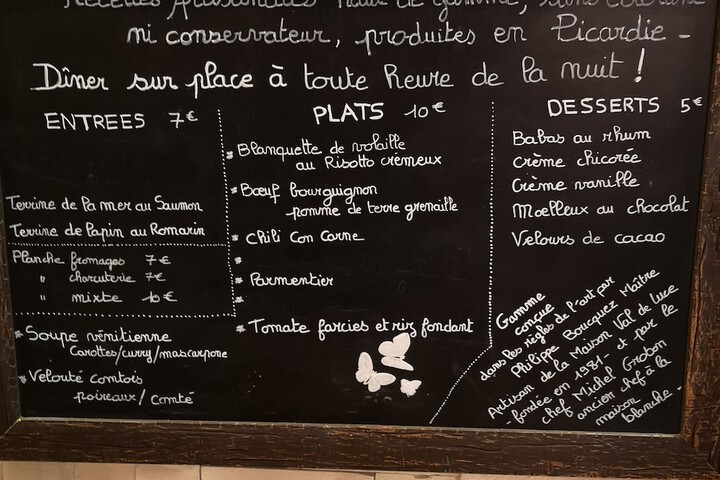 Recettes artisanales haut de gamme, sans colorant
ni conservateur, produites en Picardie -
Dîner sur place à toute heure de la nuit !
ENTREES 7€
Terrine de la mer au Saumon
Terrine de Lapin au Romarin
Planche fromages 7€
" charcuterie 7€
" mixte 10€
* Soupe vénitienne
Carottes/curry/mascarpone
* Velouté comtois
poireaux/ comté
PLATS 10€
* Blanquette de volaille
au Risotto crémeux
* Bœuf bourguignon
pomme de terre grenaille
* Chili Con Carne
*
* Parmentier
*
* Tomate farcies et riz fondant
DESSERTS 5€
Babas au rhum
Crème chicorée
Crème vanille
Moelleux au chocolat
Velours de cacao
Gamme
conçue
dans les règles de l'art par
Philippe Boucquez Maître
Artisan de la Maison Val de Luce
- fondée en 1981 - et par le
chef Michel Grobon
ancien chef à la
maison
blanche -